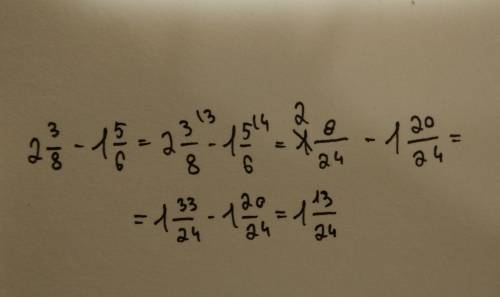 2 3/8 - 1 5/6 = 2 3/8 (3 - 1 5/6 (4 = 2 8/24 - 1 20/24 =
= 1 33/24 - 1 20/24 = 1 13/24